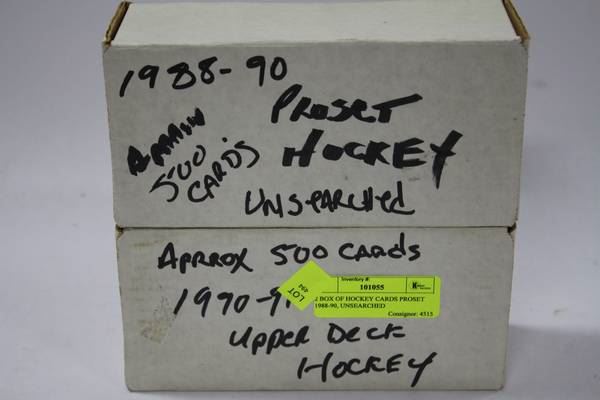 1988-90
PROSET
APPROX
500 CARDS
HOCKEY
UNSEARCHED
APPROX 500 CARDS
1990-91
UPPER DECK
HOCKEY
LOT
494
Inventory #:
101055
2 BOX OF HOCKEY CARDS PROSET
1988-90, UNSEARCHED
Consignor: 4515